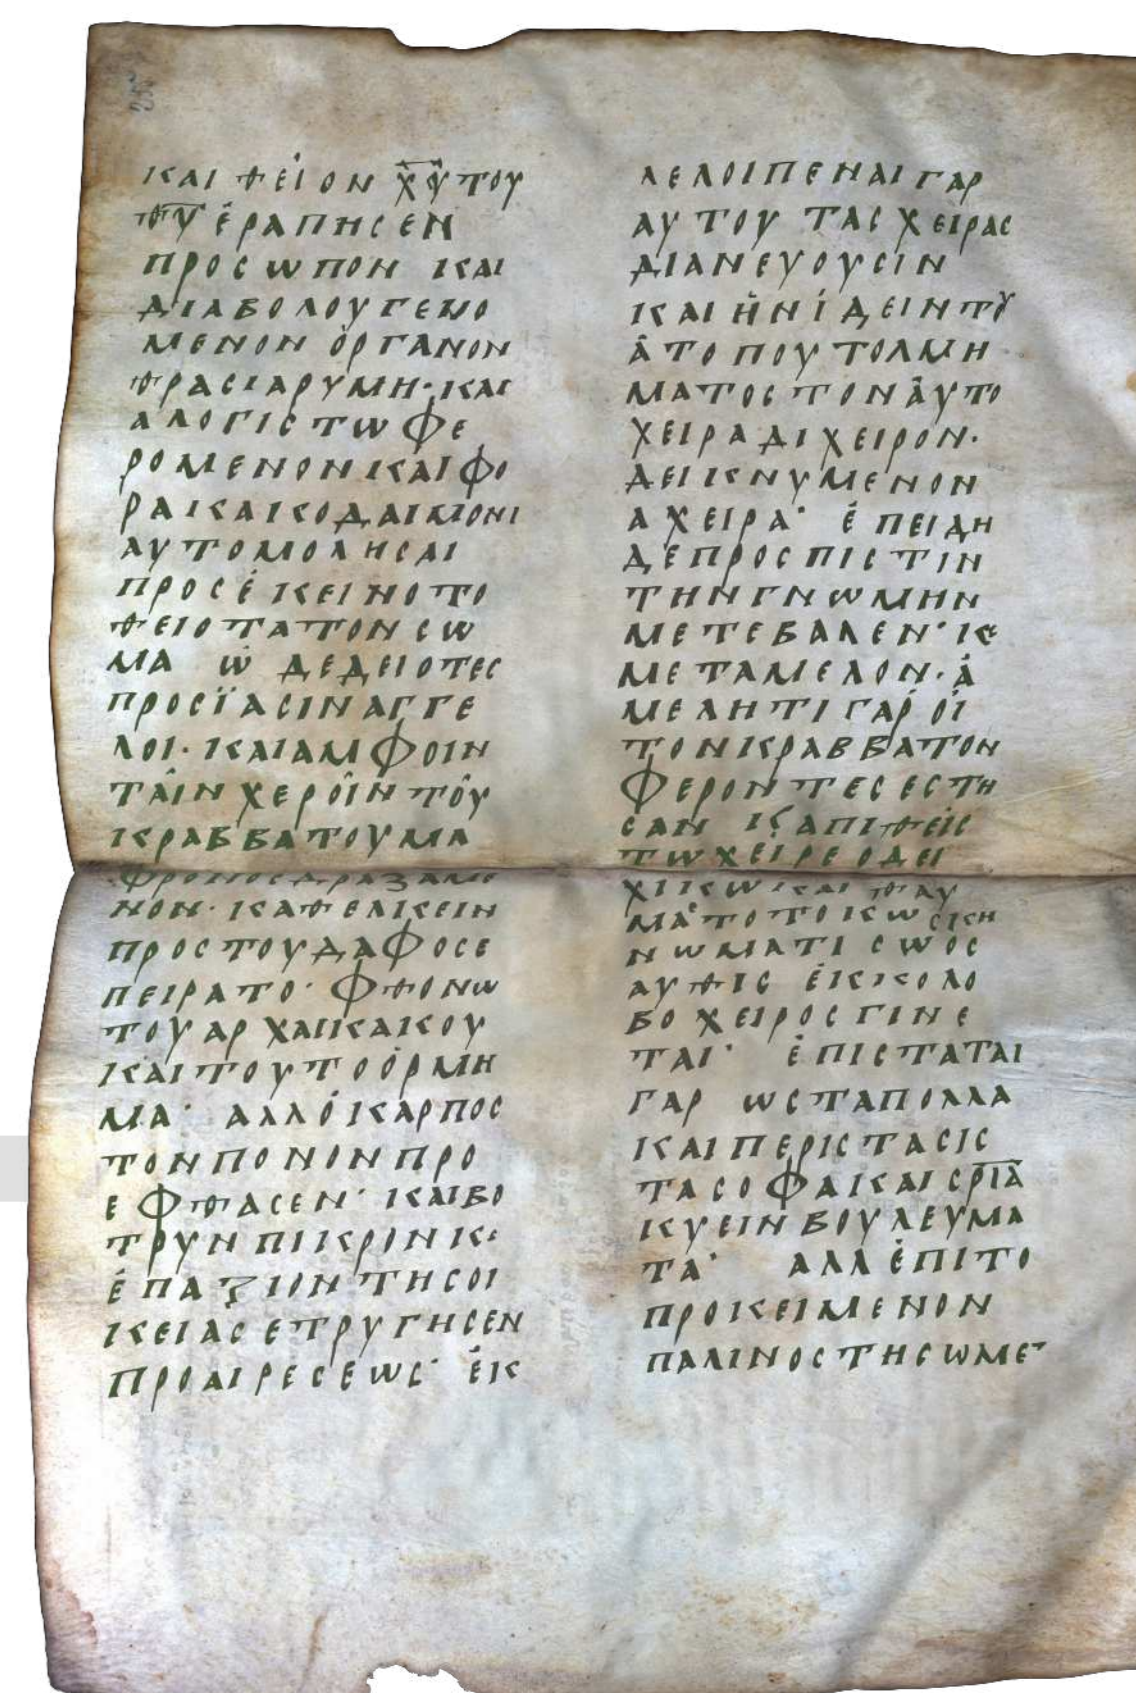 ΚΑΙ ΘΕΙΟΝ Χ͞Υ ΤΟΥ
Θ͞Υ ἙΡΑΠΗCΕΝ
ΠΡΟCΩΠΟΝ ΚΑΙ
ΔΙΑΒΟΛΟΥ ΓΕΝΟ
ΜΕΝΟΝ ὈΡΓΑΝΟΝ
ΘΡΑCΙΑΡΥΜΗ· ΚΑΙ
ΑΛΟΓΙCΤΩ ΦΕ
ΡΟΜΕΝΟΝ ΚΑΙ ΦΟ
ΡΑΙ ΚΑΚΟΔΑΙΜΟΝΙ
ΑΥΤΟΜΟΛΗCΑΙ
ΠΡΟC ἘΚΕΙΝΟ ΤΟ
ΘΕΙΟΤΑΤΟΝ CΩ
ΜΑ ὩΔΕΔΕΙΟΤΕC
ΠΡΟCΪΑCΙΝ ΑΓΓΕ
ΛΟΙ· ΚΑΙ ΑΜΦΟΙΝ
ΤΑΙΝ ΧΕΡΟΙΝ ΤΟΥ
ΚΡΑΒΒΑΤΟΥ ΜΑ
ΝΟΝ· ΚΑΘΕΛΚΕΙΝ
ΠΡΟC ΤΟΥΔΑΦΟC Ε
ΠΕΙΡΑΤΟ· ΦΘΟΝΩ
ΤΟΥ ΑΡΧΑΙΚΑΚΟΥ
ΚΑΙ ΤΟΥΤΟ ὉΡΜΗ
ΜΑ· ΑΛΛ Ὁ ΚΑΡΠΟC
ΤΟΝ ΠΟΝΟΝ ΠΡΟ
ΕΦΘΑCΕΝ· ΚΑΙ ΒΟ
ΤΡΥΝ ΠΙΚΡΟΝ Κ
ἘΠΑΞΙΟΝ ΤΗC ΟΙ
ΚΕΙΑC ΕΤΡΥΓΗCΕΝ
ΠΡΟΑΙΡΕCΕΩC· ἘΚ
ΛΕΛΟΙΠΕΝΑΙ ΓΑΡ
ΑΥΤΟΥ ΤΑC ΧΕΙΡΑC
ΔΙΑΝΕΥΟΥCΙΝ
ΚΑΙ ἨΝ ἸΔΕΙΝ ΤȢ
ἈΤΟΠΟΥ ΤΟΛΜΗ
ΜΑΤΟC ΤΟΝ ΑΥΤΟ
ΧΕΙΡΑ ΔΙ ΧΕΙΡΟΝ·
ΔΕΙΚΝΥΜΕΝΟΝ
ΑΧΕΙΡΑ· ἘΠΕΙΔΗ
ΔΕ ΠΡΟC ΠΙCΤΙΝ
ΤΗΝ ΓΝΩΜΗΝ
ΜΕΤΕΒΑΛΕΝ· Κ
ΜΕΤΑΜΕΛΟΝ· Ἀ
ΜΕΛΗΤΙ ΓΑΡ ΟΙ
ΤΟΝ ΚΡΑΒΒΑΤΟΝ
ΦΕΡΟΝΤΕC ΕCΤΗ
CΑΝ Κ ΑΠΙΘΕΙC
ΤΩ ΧΕΙΡΕ Ο ΔΕΙ
ΜΑΤΟΤΟΚΩ CΚΗ
ΝΩΜΑΤΙ CΩΟC
ΑΥΘΙC ἘΚ ΚΟΛΟ
ΒΟΧΕΙΡΟC ΓΙΝΕ
ΤΑΙ· ἘΠΙCΤΑΤΑΙ
ΓΑΡ ΩC ΤΑ ΠΟΛΛΑ
ΚΑΙ ΠΕΡΙCΤΑCΙC
ΤΑ CΟΦΑ ΚΑΙ CΡ͞ΙΑ
ΚΥΕΙΝ ΒΟΥΛΕΥΜΑ
ΤΑ· ΑΛΛ ἘΠΙ ΤΟ
ΠΡΟΚΕΙΜΕΝΟΝ
ΠΑΛΙΝΟCΤΗCΩΜΕ¯